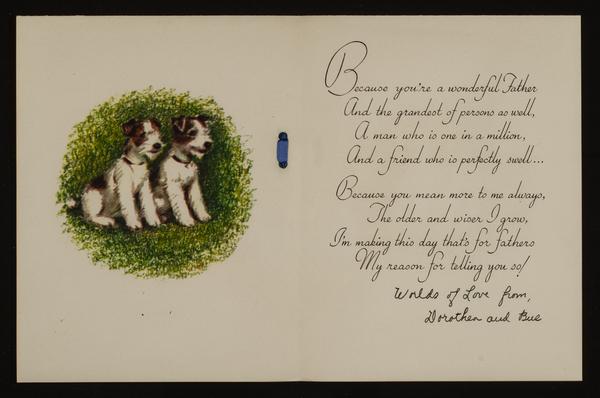 Because you're a wonderful Father
And the grandest of persons as well,
A man who is one in a million,
And a friend who is perfectly swell...
Because you mean more to me always,
The older and wiser I grow,
I'm making this day that's for fathers
My reason for telling you so!
Worlds of Love from,
Dorothea and Bue